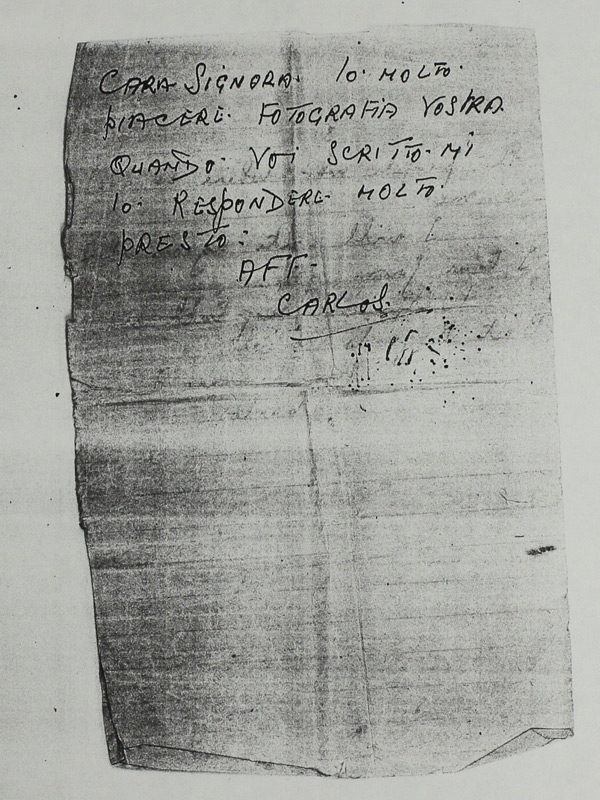 CARA SIGNORA. IO. MOLTO.
PIACERE. FOTOGRAFIA VOSTRA.
QUANDO. VOI SCRITTO. MI
IO. RESPONDERE MOLTO.
PRESTO:
AFF.
CARLOS.